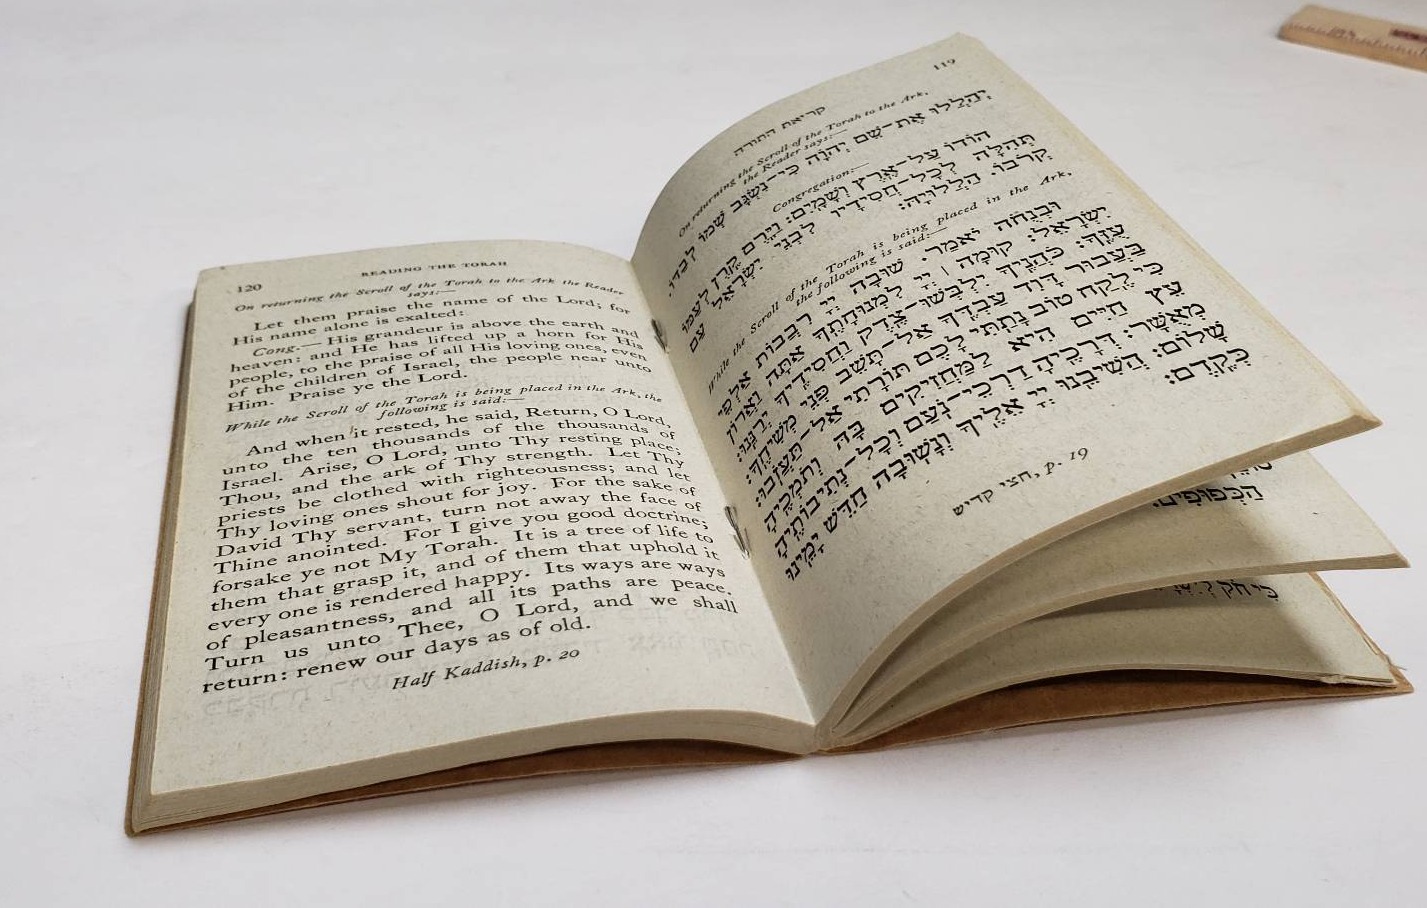 120
READING THE TORAH
On returning the Scroll of the Torah to the Ark the Reader
says:—
Let them praise the name of the Lord; for
His name alone is exalted:
Cong.— His grandeur is above the earth and
heaven: and He has lifted up a horn for His
people, to the praise of all His loving ones, even
of the children of Israel, the people near unto
Him. Praise ye the Lord.
While the Scroll of the Torah is being placed in the Ark, the
following is said:—
And when it rested, he said, Return, O Lord,
unto the ten thousands of the thousands of
Israel. Arise, O Lord, unto Thy resting place;
Thou, and the ark of Thy strength. Let Thy
priests be clothed with righteousness; and let
Thy loving ones shout for joy. For the sake of
David Thy servant, turn not away the face of
Thine anointed. For I give you good doctrine;
forsake ye not My Torah. It is a tree of life to
them that grasp it, and of them that uphold it
every one is rendered happy. Its ways are ways
of pleasantness, and all its paths are peace.
Turn us unto Thee, O Lord, and we shall
return: renew our days as of old.
Half Kaddish, p. 20
119
קריאת התורה
On returning the Scroll of the Torah to the Ark,
the Reader says:—
יְהַלְלוּ אֶת־שֵׁם יְהֹוָה כִּי־נִשְׂגָּב שְׁמוֹ לְבַדּוֹ:
Congregation:—
הוֹדוֹ עַל־אֶרֶץ וְשָׁמָיִם: וַיָּרֶם קֶרֶן לְעַמּוֹ
תְּהִלָּה לְכָל־חֲסִידָיו לִבְנֵי יִשְׂרָאֵל עַם
קְרֹבוֹ. הַלְלוּיָהּ:
While the Scroll of the Torah is being placed in the Ark,
the following is said:—
וּבְנֻחֹה יֹאמַר. שׁוּבָה יְיָ רִבְבוֹת אַלְפֵי
יִשְׂרָאֵל: קוּמָה | יְיָ לִמְנוּחָתֶךָ אַתָּה וַאֲרוֹן
עֻזֶּךָ: כֹּהֲנֶיךָ יִלְבְּשׁוּ־צֶדֶק וַחֲסִידֶיךָ יְרַנֵּנוּ:
בַּעֲבוּר דָּוִד עַבְדֶּךָ אַל־תָּשֵׁב פְּנֵי מְשִׁיחֶךָ:
כִּי לֶקַח טוֹב נָתַתִּי לָכֶם תּוֹרָתִי אַל־תַּעֲזֹבוּ:
עֵץ חַיִּים הִיא לַמַּחֲזִיקִים בָּהּ וְתֹמְכֶיהָ
מְאֻשָּׁר: דְּרָכֶיהָ דַרְכֵי־נֹעַם וְכָל־נְתִיבוֹתֶיהָ
שָׁלוֹם: הֲשִׁיבֵנוּ יְיָ אֵלֶיךָ וְנָשׁוּבָה חַדֵּשׁ יָמֵינוּ
כְּקֶדֶם:
חצי קדיש, p. 19
הַכְּפוּפִים: